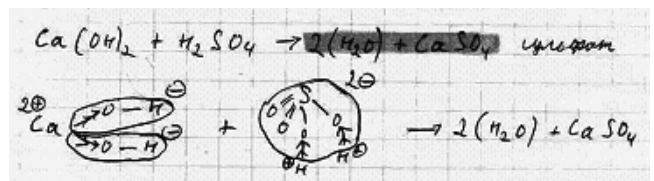 Ca(OH)₂ + H₂SO₄ → 2(H₂O) + CaSO₄ сульфат
2⊕ Ca O – H ⊖ O – H ⊖ + S O O O O H ⊕ H ⊕ 2⊖ → 2(H₂O) + CaSO₄